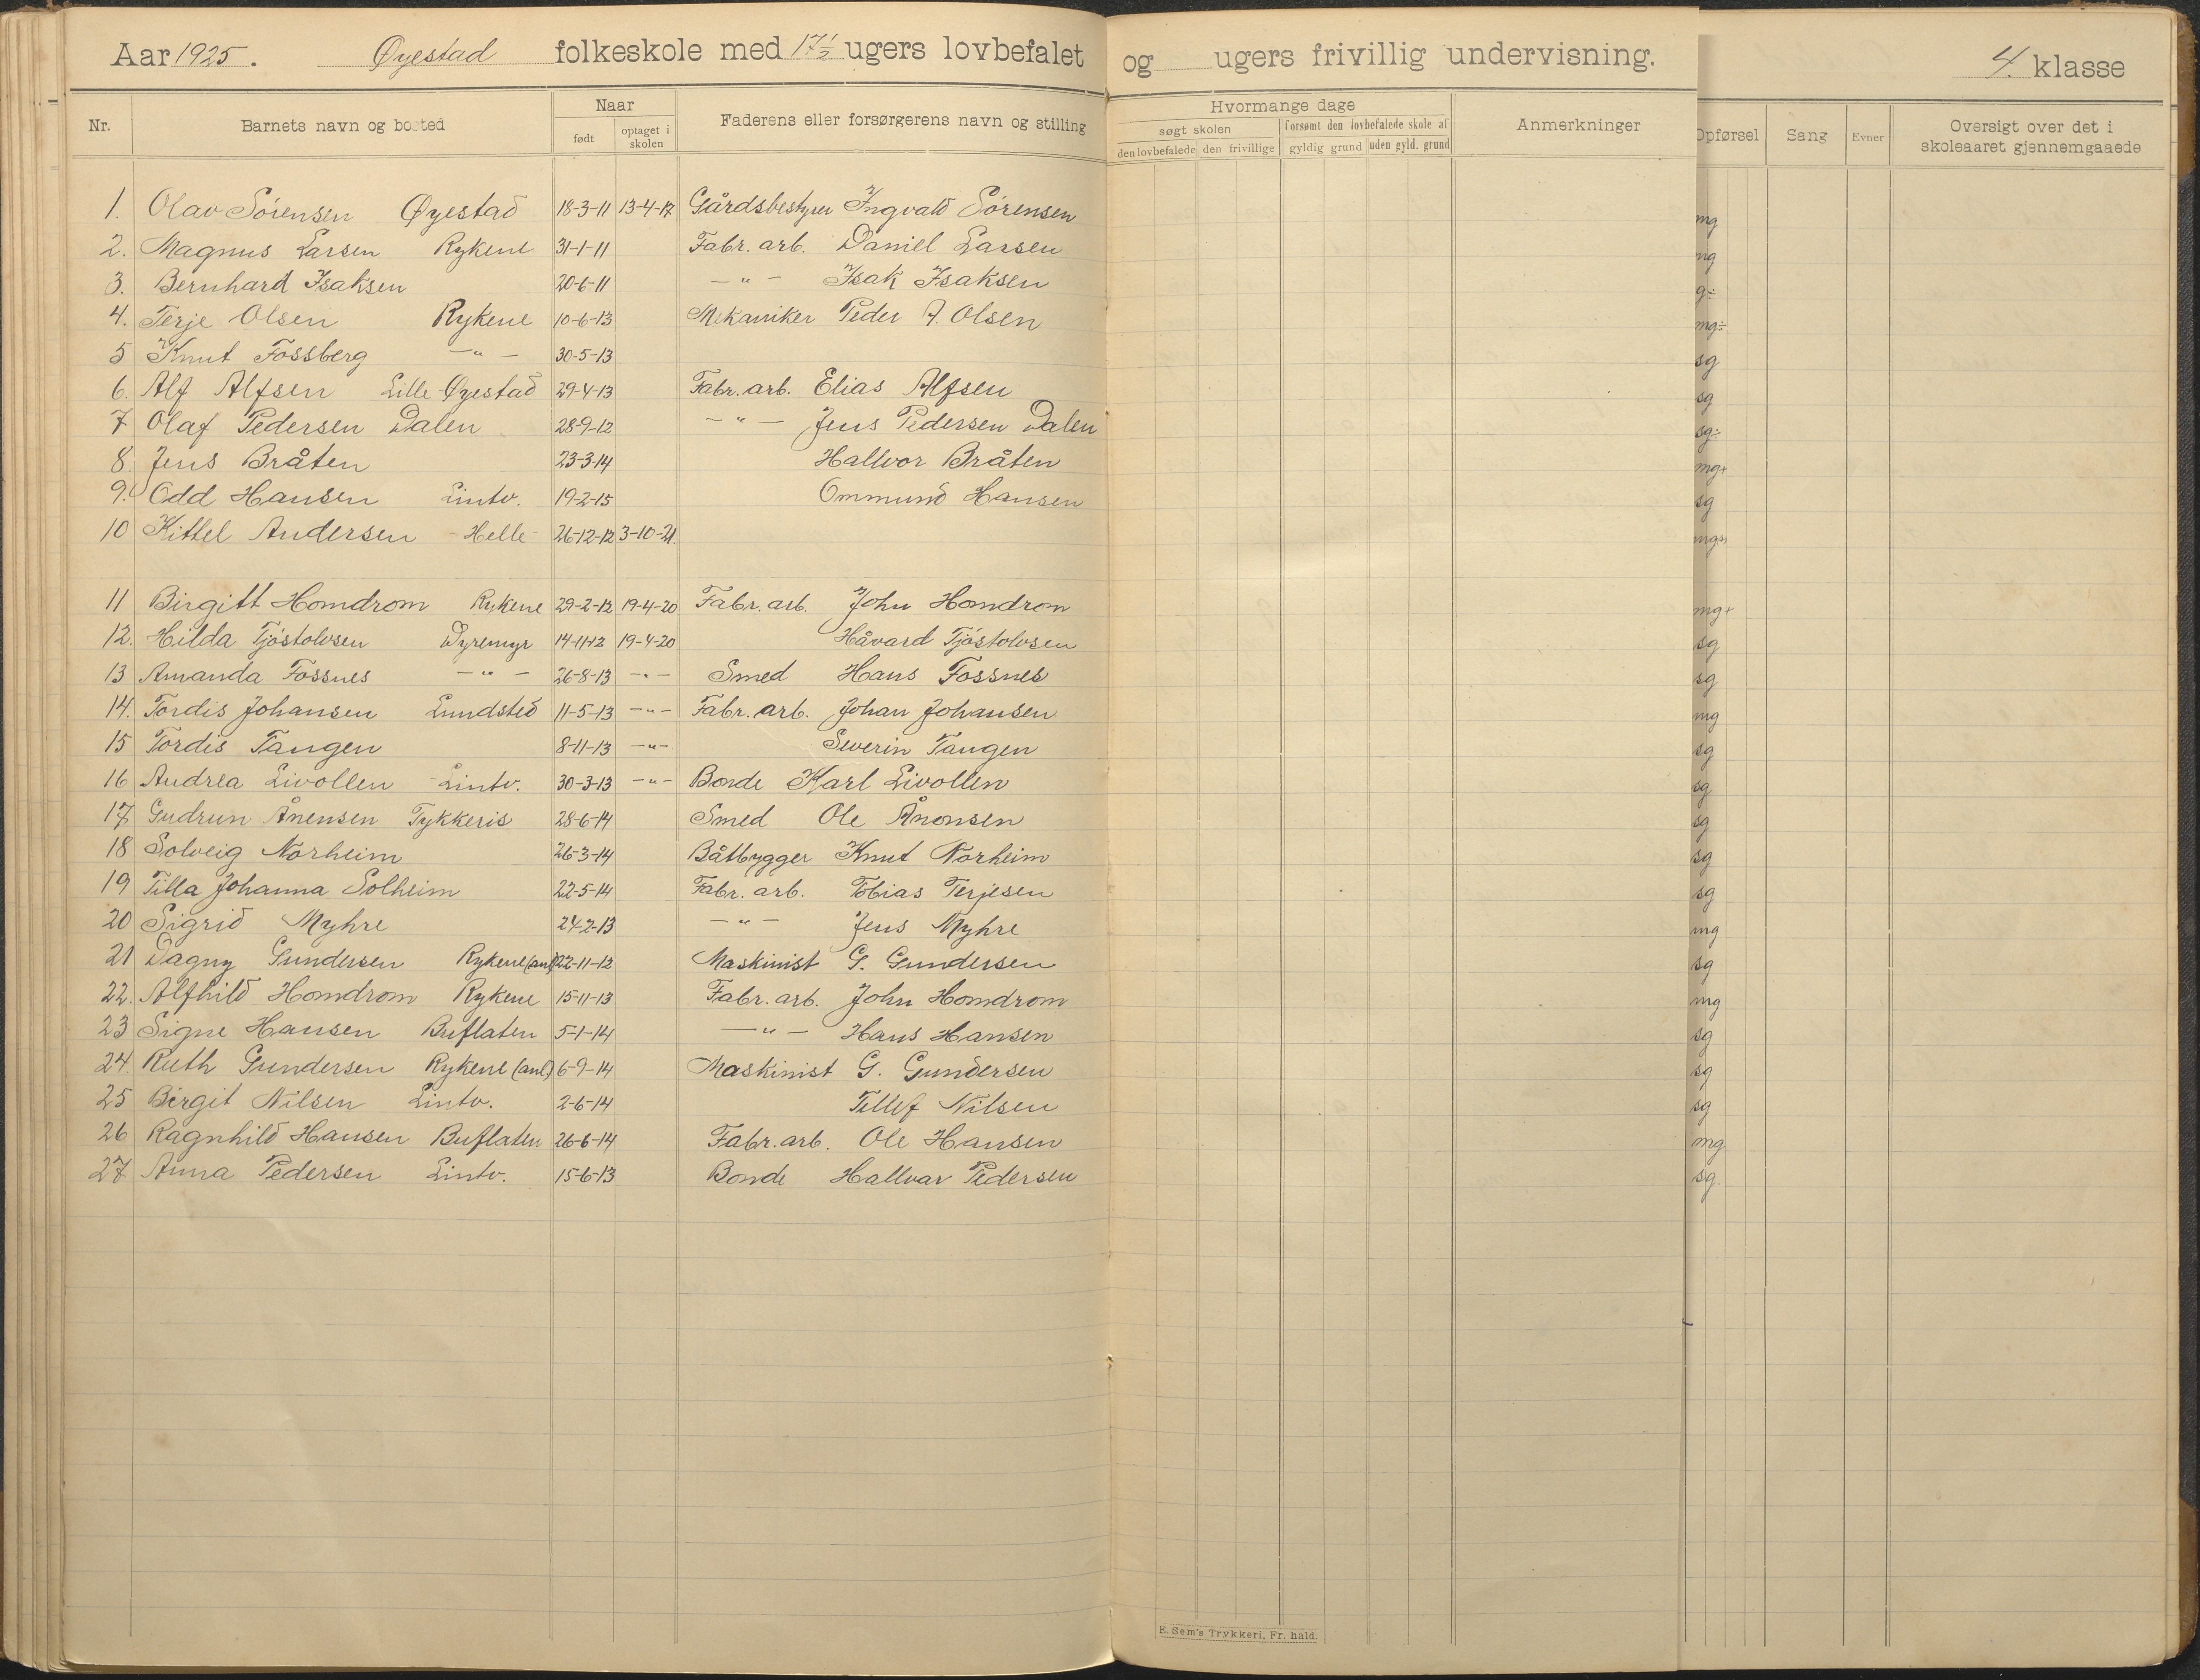 Aar 1925. Øyestad folkeskole med 17½ ugers lovbefalet og ugers frivillig undervisning. 4. klasse
Nr. Barnets navn og bosted Naar født optaget i skolen Faderens eller forsørgerens navn og stilling Hvormange dage søgt skolen den lovbefalede den frivillige forsømt den lovbefalede skole af gyldig grund uden gyld. grund Anmerkninger Opførsel Sang Evner Oversigt over det i skoleaaret gjennemgaaede
1. Olav Sörensen Øyestad 18-3-11 13-4-17 Gårdsbestyrer Ingvald Sörensen mg
2. Magnus Larsen Rykene 31-1-11 Fabr. arb. Daniel Larsen mg
3. Bernhard Isaksen 20-6-11 —"— Isak Isaksen g÷
4. Terje Olsen Rykene 10-6-13 Mekaniker Peder A. Olsen mg÷
5 Knut Fossberg —"— 30-5-13 sg
6. Alf Alfsen Lille-Øyestad 29-4-13 Fabr. arb. Elias Alfsen sg
7 Olaf Pedersen Dalen 28-9-12 —"— Jens Pedersen Dalen sg÷
8. Jens Bråten 23-3-14 Hallvor Bråten mg+
9. Odd Hansen Lintv. 19-2-15 Ommund Hansen sg
10 Kittel Andersen - Helle - 26-12-12 3-10-21.
11 Birgitt Homdrom Rykene 29-2-12 19-4-20 Fabr. arb. John Homdrom mg+
12. Hilda Tjöstolvsen Dyremyr 14-11-12 19-4-20 Håvard Tjöstolvsen sg
13 Amanda Fossnes —"— 26-8-13 —"— Smed Hans Fossnes sg
14. Tordis Johansen Lundsted 11-5-13 —"— Fabr. arb. Johan Johansen mg
15 Tordis Tangen 8-11-13 —"— Severin Tangen sg
16 Andrea Livollen Lintv. 30-3-13 —"— Bonde Karl Livollen sg
17 Gudrun Ånensen Tykkeris 28-6-14 Smed Ole Ånonsen sg
18 Solveig Norheim 26-3-14 Båtbygger Knut Norheim sg
19 Tilla Johanna Solheim 22-5-14 Fabr. arb. Tobias Terjesen sg
20 Sigrid Myhre 24-2-13 —"— Jens Myhre mg
21 Dagny Gundersen Rykene (anl) 22-11-12 Maskinist G. Gundersen sg
22. Alfhild Homdrom Rykene 15-11-13 Fabr. arb. John Homdrom mg
23 Signe Hansen Buflaten 5-1-14 —"— Hans Hansen sg
24. Ruth Gundersen Rykene (anl) 6-9-14 Maskinist G. Gundersen sg
25 Birgit Nilsen Lintv. 2-6-14 Tellef Nilsen sg
26 Ragnhild Hansen Buflaten 26-6-14 Fabr. arb. Ole Hansen mg
27 Anna Pedersen Lintv. 15-6-13 Bonde Hallvar Pedersen sg.
E. Sem's Trykkeri, Fr. hald.